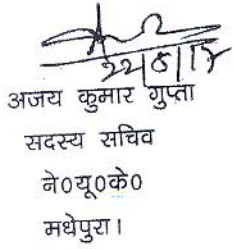 अजय कुमार गुप्ता
सदस्य सचिव
ने०यू०के०
मधेपुरा।